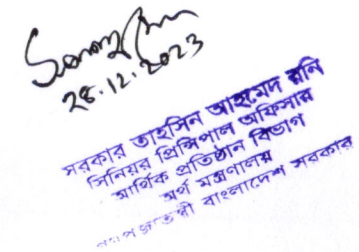 28.12.2023
সরকার তাহসিন আহমেদ রনি
সিনিয়র প্রিন্সিপাল অফিসার
আর্থিক প্রতিষ্ঠান বিভাগ
অর্থ মন্ত্রণালয়
গণপ্রজাতন্ত্রী বাংলাদেশ সরকার